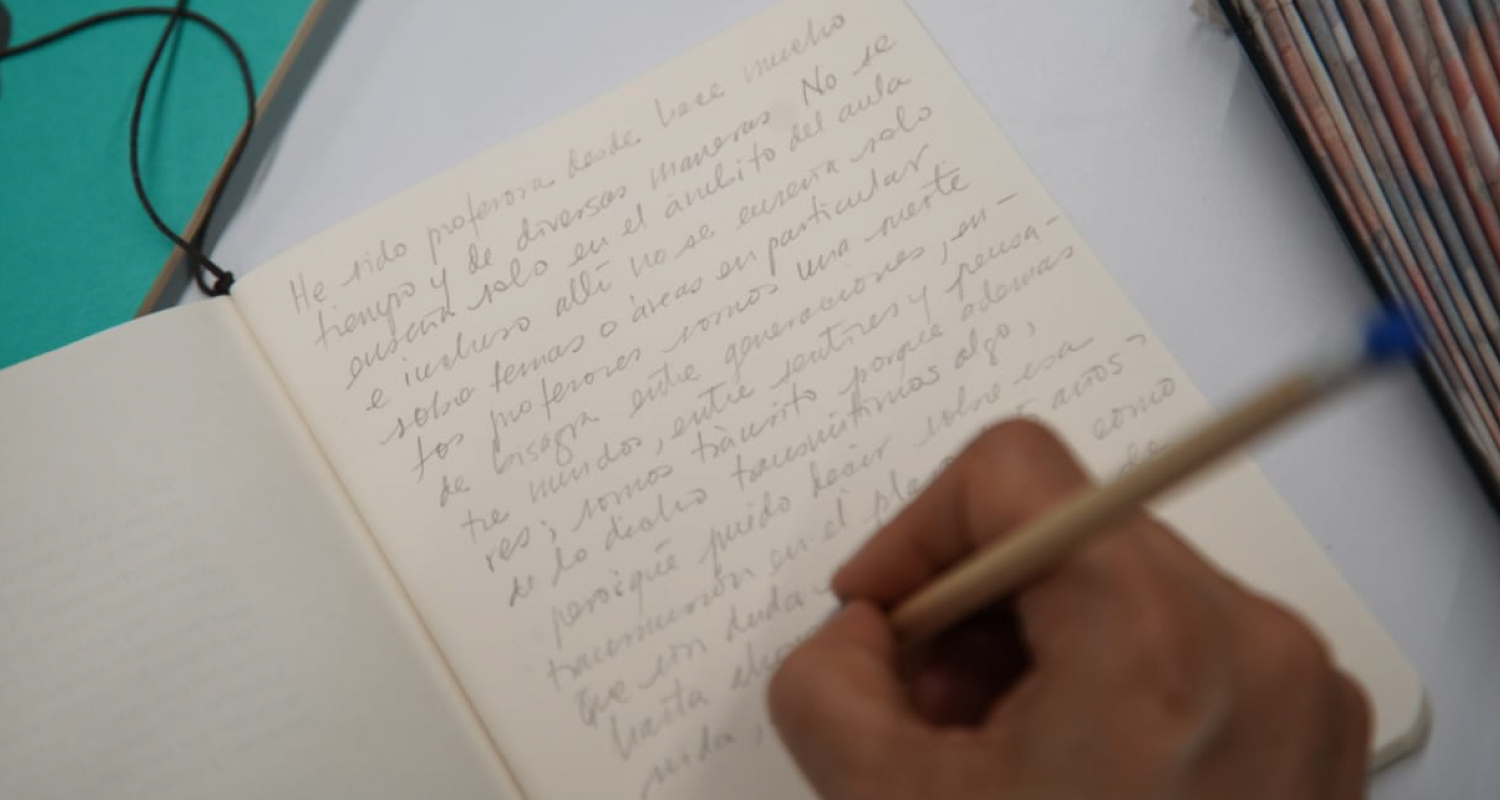 He sido profesora desde hace mucho
tiempo y de diversas maneras No se
enseña solo en el ámbito del aula
e incluso allí no se enseña solo
sobre temas o áreas en particular.
Los profesores somos una suerte
de bisagra entre generaciones, en-
tre mundos, entre sentires y pensa-
res; somos tránsito porque además
de lo dicho transmitimos algo,
pero ¿qué puedo decir sobre esa
transmisión en el
que sin duda como
hasta
vida,